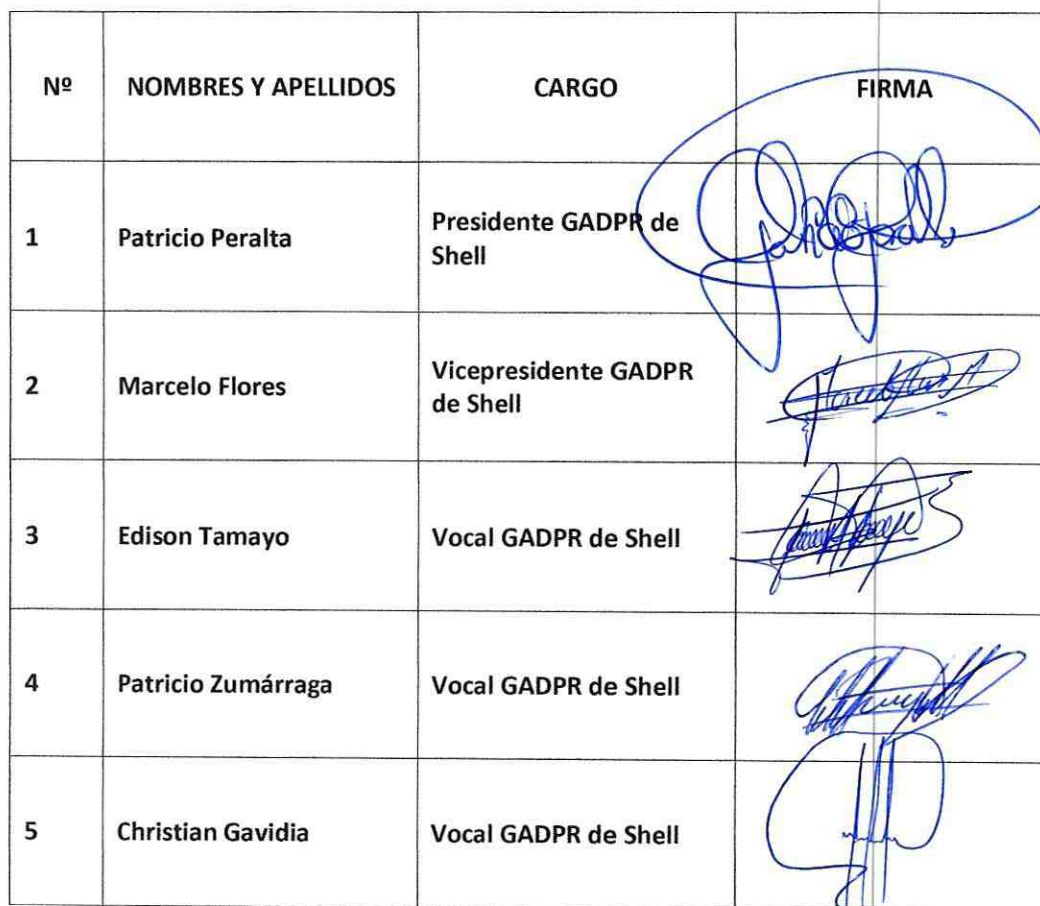 Nº NOMBRES Y APELLIDOS CARGO FIRMA
1 Patricio Peralta Presidente GADPR de
Shell
2 Marcelo Flores Vicepresidente GADPR
de Shell
3 Edison Tamayo Vocal GADPR de Shell
4 Patricio Zumárraga Vocal GADPR de Shell
5 Christian Gavidia Vocal GADPR de Shell